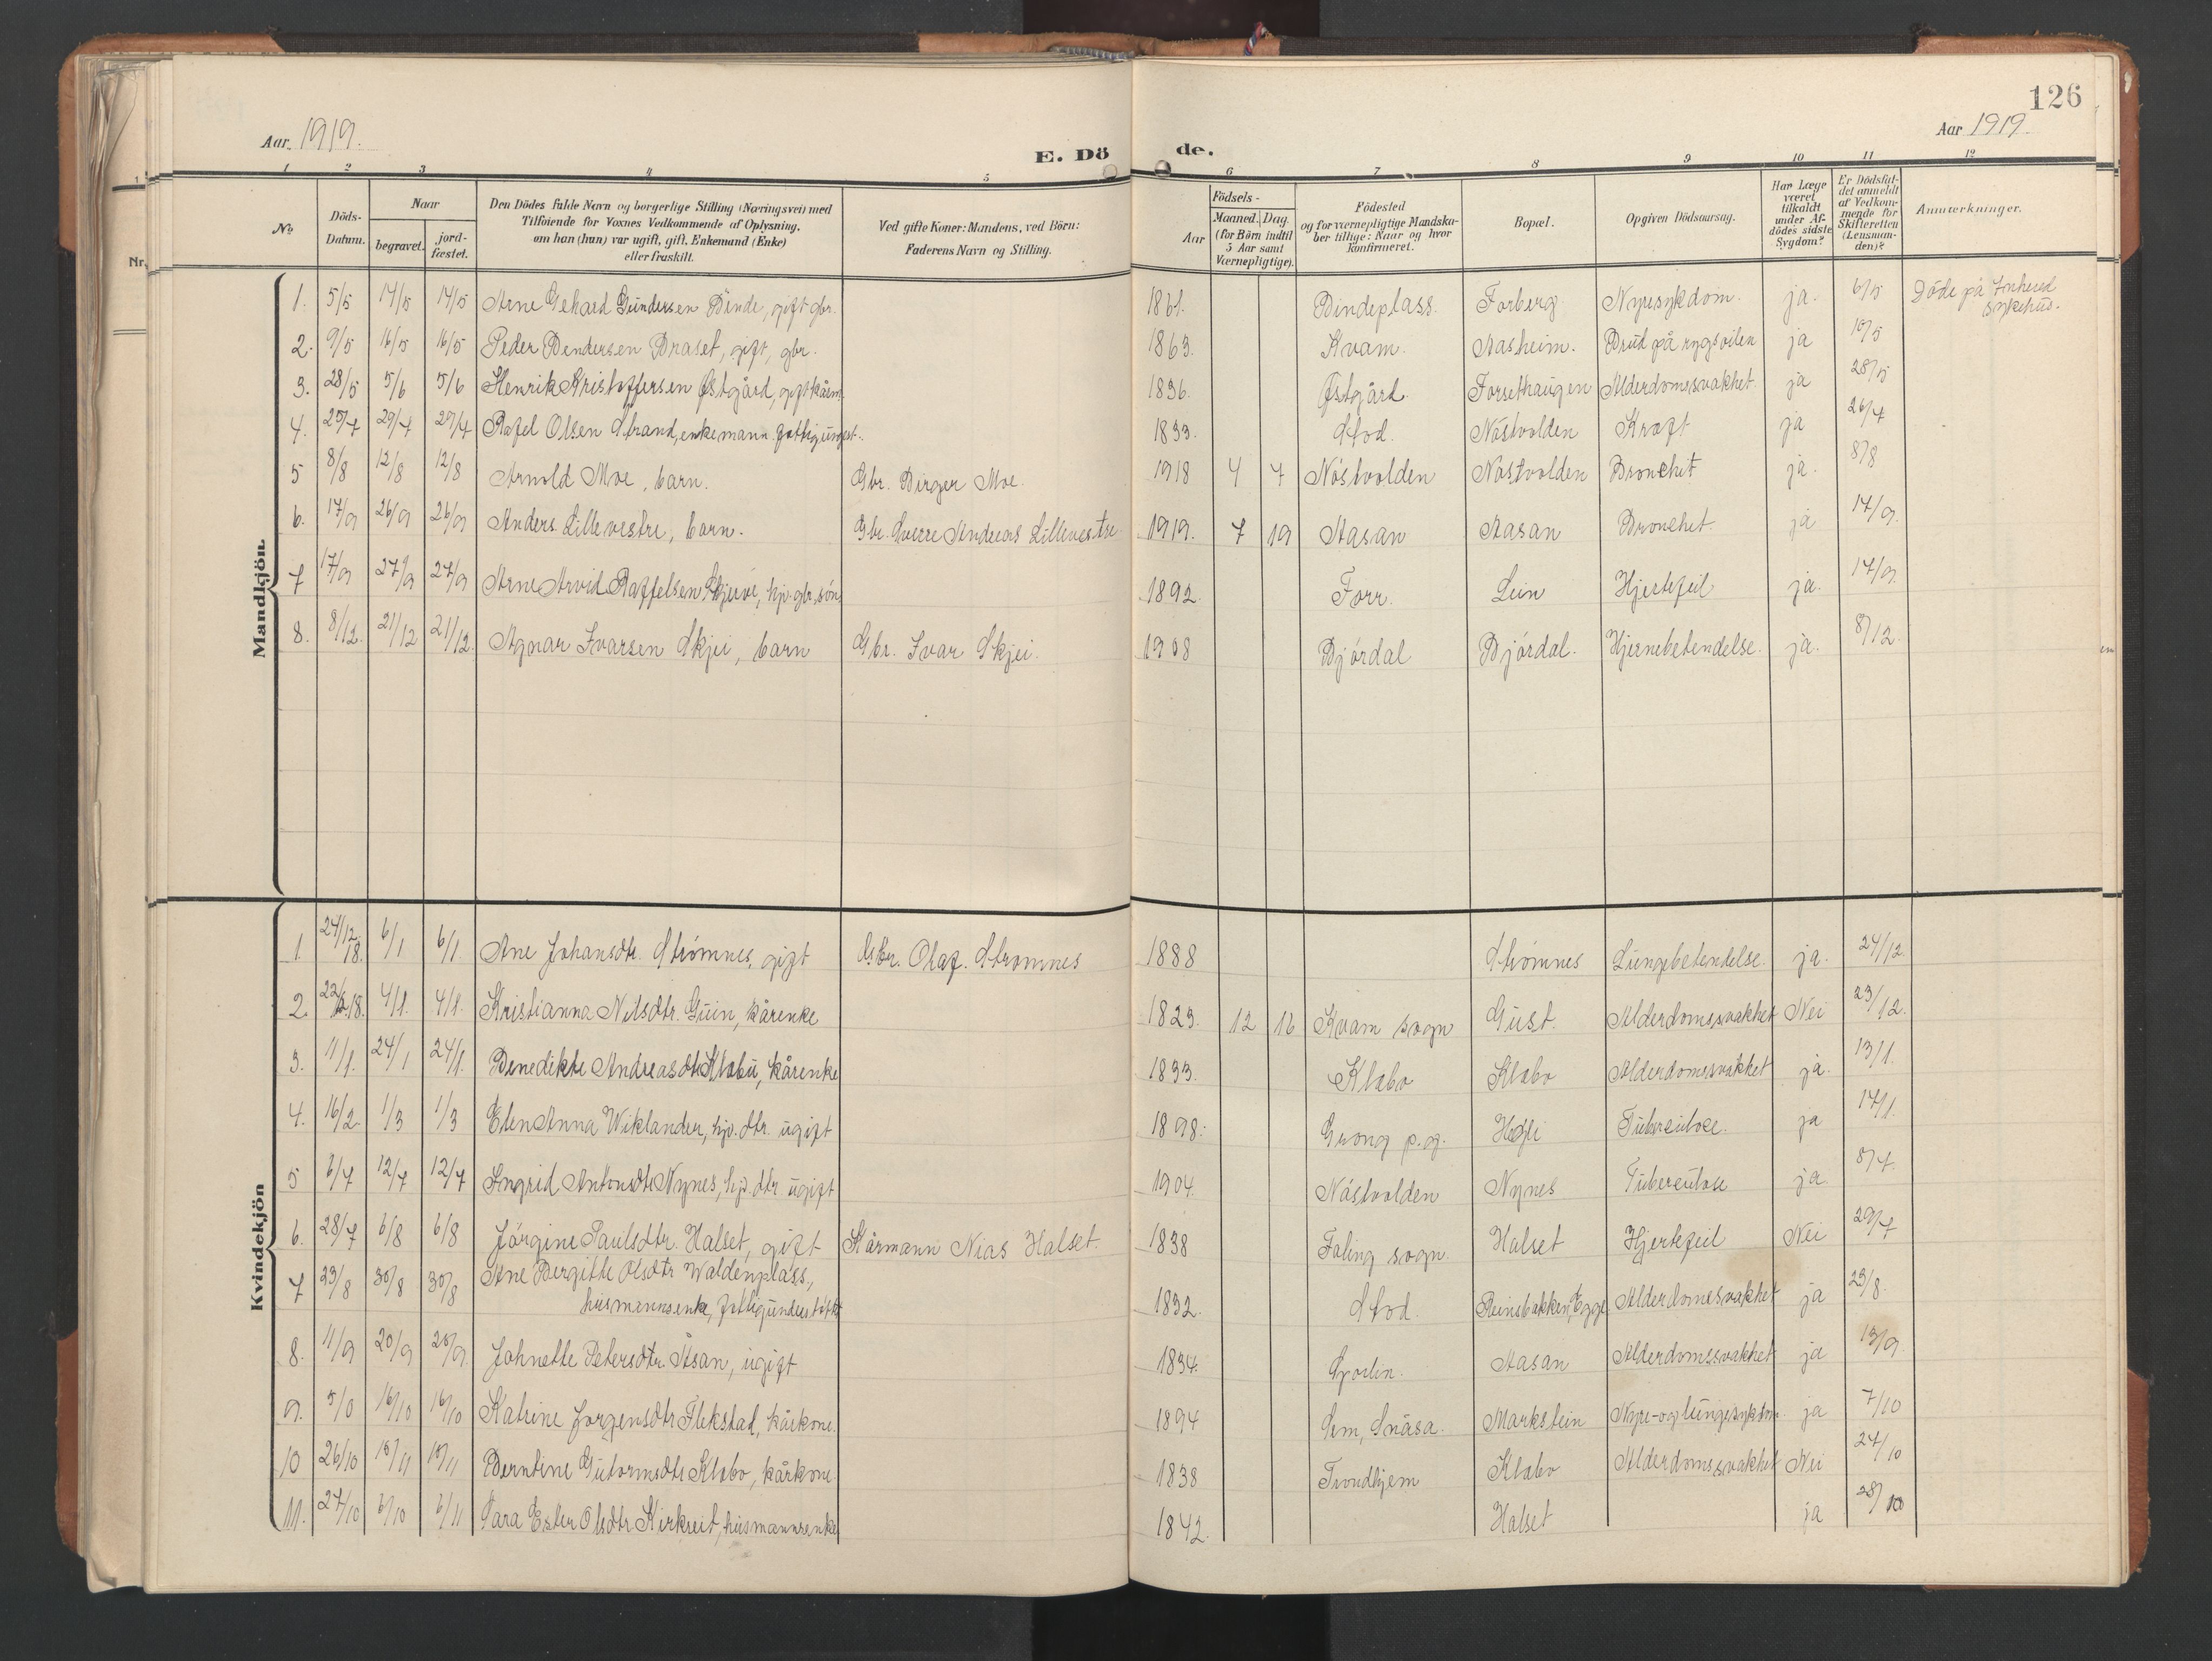 126
Aar 1919.
Aar 1919.
E. Dö
de.
1 2 3 4 5 6 7 8 9 10 11 12
No.
Döds-
Datum.
Naar
begravet.
jord-
fæstet.
Den Dödes fulde Navn og borgerlige Stilling (Næringsvei) med
Tilföiende for Voxnes Vedkommende af Oplysning,
om han (hun) var ugift, gift, Enkemand (Enke)
eller fraskilt.
Ved gifte Koner: Mandens, ved Börn:
Faderens Navn og Stilling.
Födsels-
Aar
Maaned. Dag.
(for Börn indtil
5 Aar samt
Værnepligtige).
Födested
og for værnepligtige Mandska-
ber tillige: Naar og hvor
konfirmeret.
Bopæl.
Opgiven Dödsaarsag.
Har Læge
været
tilkaldt
under Af-
dödes sidste
Sygdom?
Er Dödsfal-
det anmeldt
af Vedkom-
mende for
Skifteretten
(Lensman-
den)?
Anmærkninger.
Nr.
Mandkjön.
1. 5/5 14/5 14/5 Arne Gehard Gundersen Binde, gift gbr. 1861. Bindeplass. Forberg Nyresykdom. ja. 6/5 Döde på Inherred
sykehus.
2. 9/5 16/5 16/5 Peder Bendersen Braset, gift, gbr. 1863. Kvam. Aasheim. Brud på rygsöilen ja 10/5
3. 28/5 5/6 5/6 Henrik Kristoffersen Østgård, gift kårm. 1836. Østgård. Forsethaugen Alderdomssvakhet. ja 28/5
4. 25/7 29/7 29/7 Rafel Olsen Strand, enkemann. fattigunderst. 1833. Stod. Nöstvolden Kræft ja 26/7
5 8/8 12/8 12/8 Arnold Moe, barn. Gbr. Birger Moe. 1918 4 7 Nöstvolden Nöstvolden Bronchit ja. 8/8
6. 17/9 26/9 26/9 Anders Lillevestre, barn. Gbr. Sverre Andreas Lillevestre 1919. 7 19 Aasan Aasan Bronchit. ja 17/9.
7 17/9 27/9 27/9 Arne Arvid Raffelsen Skjerve, hj. gbr. sön. 1892. Forr. Lein Hjertefeil ja. 17/9.
8. 8/12. 21/12 21/12. Agnar Ivarsen Skjei, barn Gbr. Ivar Skjei. 1908 Björdal Björdal. Hjernebetendelse. ja. 8/12
Kvindekjön
1 24/12 18. 6/1 6/1. Ane Johansdtr. Strömnes, gift Gbr. Olaf. Strömnes 1888 Strömnes Lungebetendelse. ja. 24/12.
2. 22/12.18. 4/1. 4/1. Kristianna Nilsdtr. Guin, kårenke 1823. 12 16 Kvam sogn Gust. Alderdomssvakhet Nei 23/12.
3. 11/1. 24/1 24/1. Benedikte Andreasdtr Klæbu, kårenke 1833. Klæbo Klæbo Alderdomssvakhet ja. 13/1.
4. 16/2. 1/3 1/3 Elen Anna Wiklander, hjv. dtr. ugift 1898. Grong p.g. Heggli Tuberculose. ja 17/1.
5 6/7 12/7 12/7 Ingrid Antonsdtr Nynes, hj. dtr ugift 1904. Nöstvolden Nynes Tuberculose ja. 8/7.
6. 28/7 6/8 6/8 Jörgine Paulsdtr. Halset, gift Kårmann Nias Halset. 1838 Føling sogn. Halset Hjertefeil Nei 29/7
7 23/8 30/8 30/8 Ane Bergitte Olsdtr Waldenplass,
husmannsenke, fattigunderstöttet 1832. Stod. Reinsbakken, Egge. Alderdomssvakhet ja 23/8.
8. 11/9 20/9 20/9. Johnette Petersdtr. Åsan, ugift 1834. Sparbu. Aasan Alderdomssvakhet ja 13/9.
9. 5/10 16/10 16/10 Katrine Jorgensdtr Flekstad, kårkone. 1894 Sem, Snåsa. Markstein Nyre- og lungesykdom. ja 7/10
10 26/10 10/11 10/11 Berntine Gutormsdtr Klæbo, kårkone 1838 Trondhjem Klæbo Alderdomssvakhet Nei 27/10
11. 27/10 6/10 6/11 Sara Ester Olsdtr Kirkreit, husmannsenke 1842. Halset ja 28/10